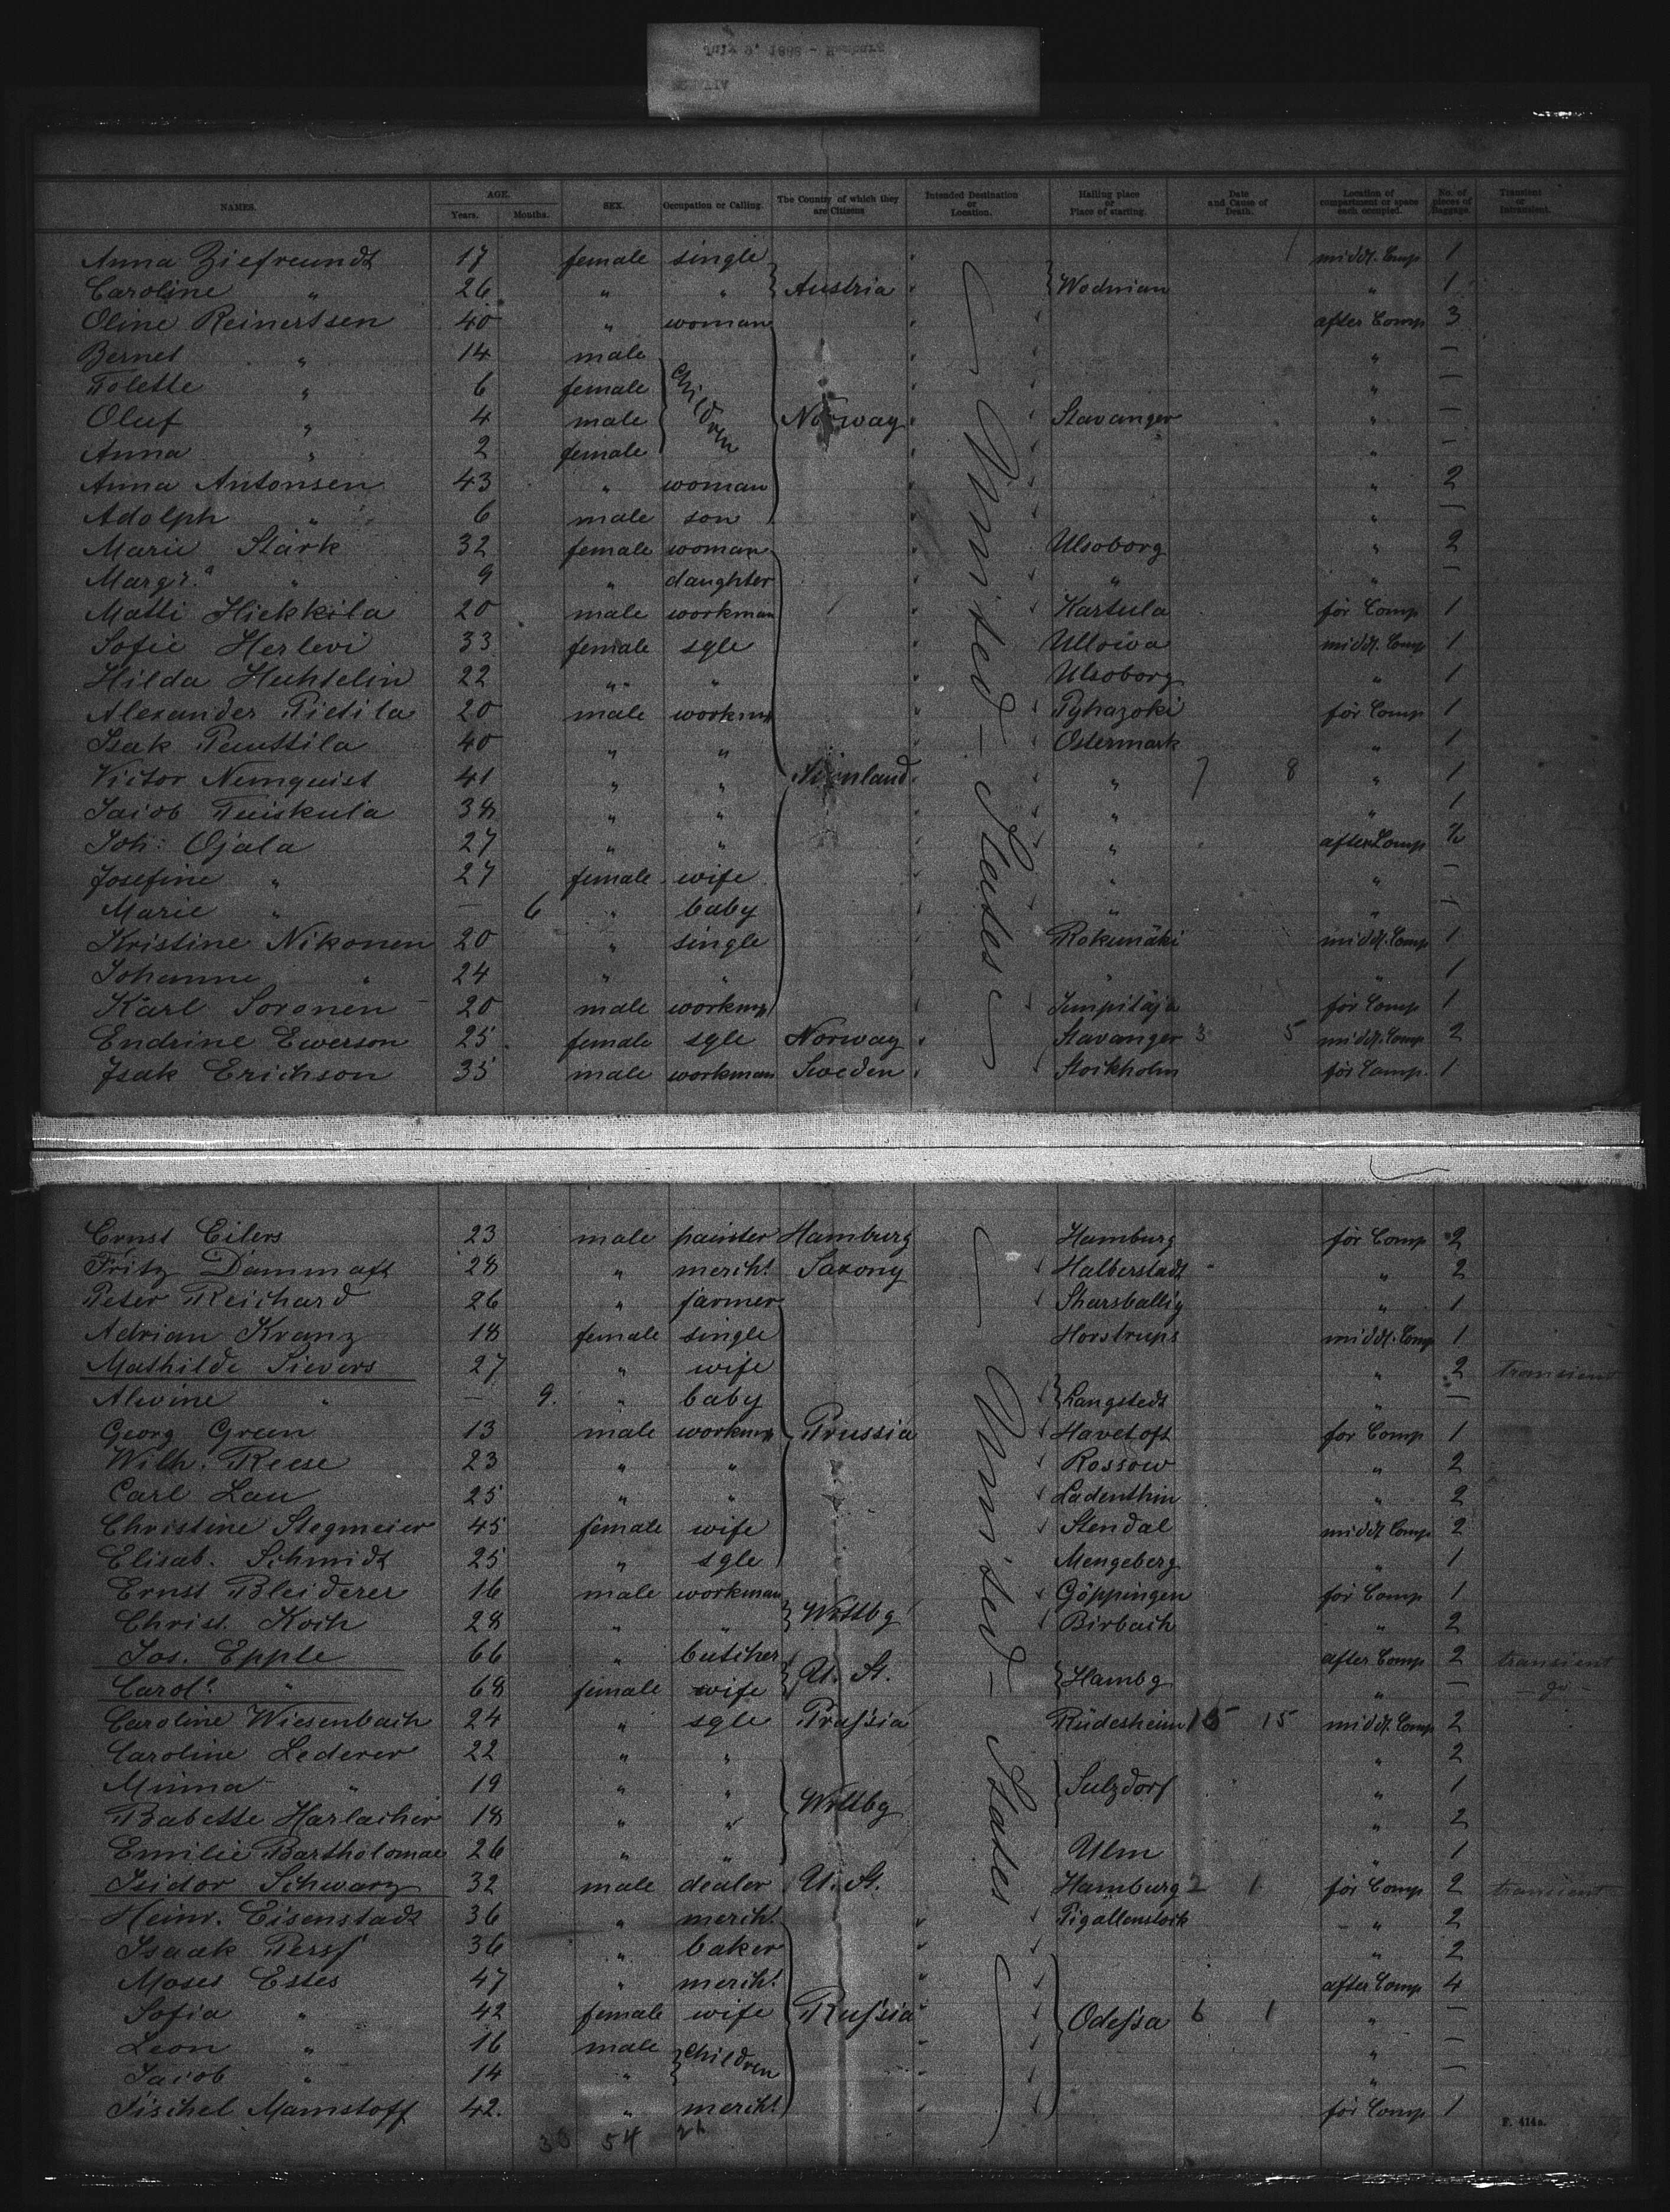 July 9' 1888 - Hamburg
NAMES. AGE. Years. Months. SEX. Occupation or Calling. The Country of which they are Citizens Intended Destination or Location. Hailing place or Place of starting. Date and Cause of Death. Location of compartment or space each occupied. No. of pieces of Baggage. Transient or Intransient.
Anna Ziefreundt 17 female single middl. Comp 1
Caroline " 26 " " } Austria } Wodnian " 1
Oline Reinertsen 40 " woman after Comp 3
Bernet " 14 male " —
Tolette " 6 female children " —
Oluf " 4 male Norway Stavanger " —
Anna " 2 female " —
Anna Antonsen 43 " woman " 2
Adolph " 6 male son " —
Marie Stärk 32 female woman Ulsoborg " 2
Margr.a " 9 " daughter " " —
Matti Hickkila 20 male workman Kartula för Comp 1
Sofie Herlevi 33 female sgle Ullowa middl. Comp 1
Hilda Huhtelin 22 " " Ulsoborg " 1
Alexander Pietila 20 male workmn Pyhazoki för Comp 1
Isak Penttila 40 " " Ostermark " 1
Victor Nemquist 41 " " Finnland " 7 8 " 1
Jacob Tuiskula 38 " " " " 1
Joh: Ojala 27 " " " after Comp
Josefine " 27 female wife " " —
Marie " — 6 " baby " " —
Kristine Nikonen 20 " single Rokumäki middl. Comp 1
Johanne " 24 " " " " 1
Karl Soronen 20 male workmn Jumpiläja för Comp 1
Endrine Ewerson 25 female sgle Norway Stavanger 3 5 middl. Comp 2
Isak Erichson 35 male workman Sweden Stockholm för Comp. 1
United States
Ernst Eilers 23 male painter Hamburg Hamburg för Comp 2
Fritz Dammaft 28 " mercht. Saxony Halberstadt " 2
Peter Reichard 26 " farmer Sharsballig " 1
Adrian Kranz 18 female single Horstrups middl. Comp 1
Mathilde Sievers 27 " wife " 2 transient
Alwine " — 9. " baby } Langstedt " —
Georg Green 13 male workmn Prussia Havetoft for Comp 1
Wilh. Reese 23 " " Rossow " 2
Carl Lau 25 " " Ladenthin " 2
Christine Stegmeier 45 female wife Stendal middl Comp 2
Elisab. Schmidt 25 " sgle Mengeberg " 1
Ernst Bleiderer 16 male workman Göppingen för Comp 1
Christ. Koch 28 " " } Wttbg Birbach " 2
Jos. Epple 66 " butcher after Comp 2 transient
Carol.e " 68 female wife } U. St. } Hambg " — — do —
Caroline Wiesenbach 24 " sgle Prussia Rüdesheim 15 15 middl. Comp 2
Caroline Lederer 22 " " " 2
Minna " 19 " " Sulzdorf " 1
Babette Harlacher 18 " " Wttbg " 2
Emilie Bartholomae 26 " " Ulm " 1
Isidor Schwarz 32 male dealer U. St. Hamburg 2 1 för Comp 2 transient
Heinr. Eisenstadt 36 " mercht. Pigallenstock " 2
Isaak Perss 36 " baker " 2
Moses Estes 47 " mercht. after Comp 4
Sofia " 42 female wife Russia Odessa 6 1 " —
Leon " 16 male } children " —
Jacob " 14 " " —
Fischel Mamstoff 42. " mercht. för Comp 1
United States
54
F. 414a.